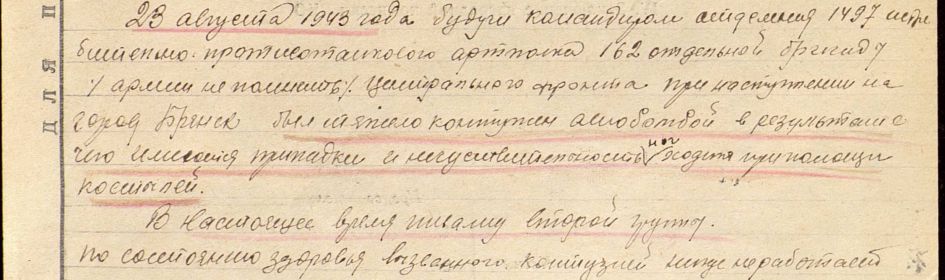 23 августа 1943 года будучи командиром отделения 1497 истре
бительно-противотанкового артполка 162 отдельной бригады
/ армии не помнить /. Центрального фронта при наступлении на
город Брянск был тяжело контужен авиобомбой в результате
чего имеются припадки и нечувствительность ног ходит при помощи
костылей.
В настоящее время инвалид второй группы.
по состоянию здоровья вызванного контузией нигде не работает
ДЛЯ П